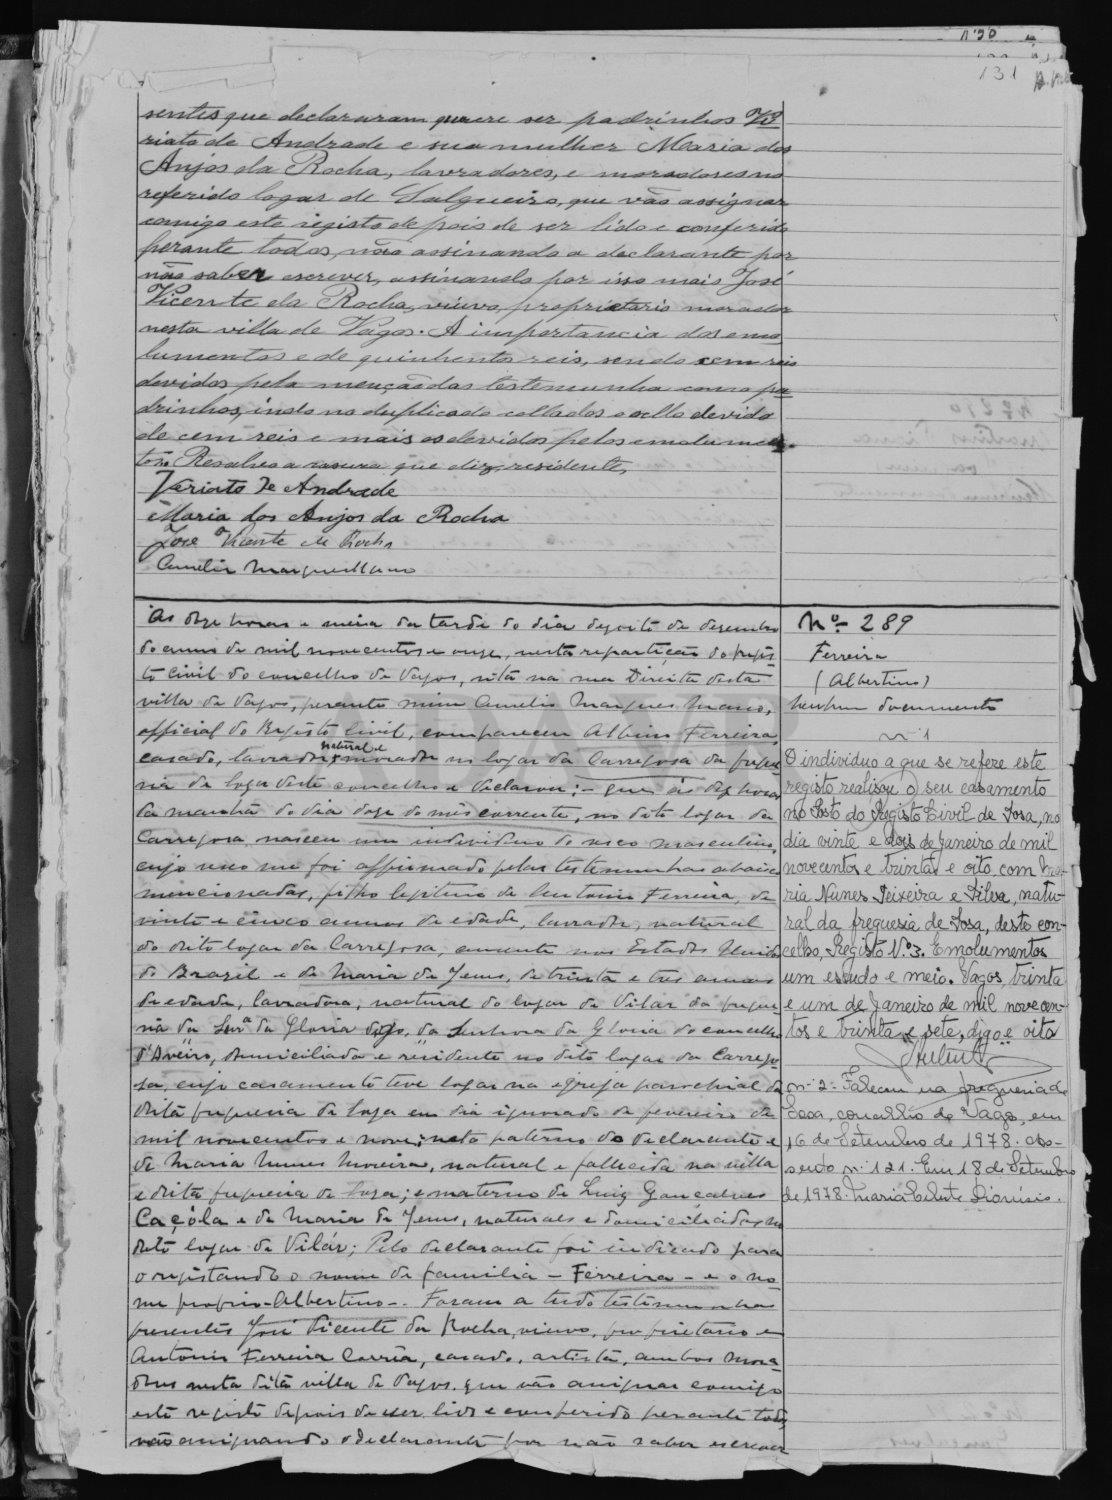 131
sentes que declararam querer ser padrinhos Vi
riato de Andrade e sua mulher Maria dos
Anjos da Rocha, lavradores, e moradores no
referido logar de Salgueiro, que vão assignar
comigo este registo depois de ser lido e conferido
perante todos, não assinando a declarante por
não saber escrever, assinando por isso mais José
Vicente da Rocha, viuvo, proprietario morador
nesta villa de Vagos. A importancia dos emo
lumentos e de quinhentos reis, sendo cem reis
devidos pela menção das testemunha como pa
drinhos, indo no duplicado collados o sello devido
de cem reis e mais os devidos pelos emolumen
tos. Resalvo a rasura que diz, residente,
Veriato de Andrade
Maria dos Anjos da Rocha
José Vicente da Rocha
Amelio Marques Mano
As onze horas e meia da tarde do dia dezoito de dezembro
do anno de mil novecentos e onze, nesta repartição do regis
to Civil do concelho de Vagos, sita na rua Direita desta
villa de Vagos, perante mim Amelio Marques Mano,
official do Registo Civil, compareceu Albino Ferreira,
natural e
casado, lavrador, morador no logar da Carregosa da fregue
zia de Soza deste concelho e declarou: - que ás dez horas
da manhã do dia doze do mês corrente, no dito logar da
Carregosa, nasceu um individuo do sexo masculino,
cujo sexo me foi affirmado pelas testemunhas abaixo
mencionadas, filho legitimo de Antonio Ferreira, de
vinte e cinco annos de edade, lavrador, natural
do dito logar da Carregosa, ausente nos Estados Unidos
do Brazil e de Maria de Jesus, de trinta e tres annos
de edade, lavradora, natural do logar de Vilar da fregue
zia da Senrª da Gloria digo, da Senhora da Gloria do concelho
d'Aveiro, domiciliada e residente no dito logar da Carrego
sa, cujo casamento teve logar na egreja parochial da
dita freguezia de Soza em dia ignorado de fevereiro de
mil novecentos e nove; neto paterno do declarante e
de Maria Nunes Moreira, natural e fallecida na villa
e dita freguezia de Soza; e materno de Luiz Gonçalves
Caçóla e de Maria de Jesus, naturaes e domiciliados no
dito logar de Vilár; Pelo declarante foi indicado para
o registando o nome de familia - Ferreira - e o no
me proprio - Albertino -. Foram a tudo testemunhas
presentes José Vicente da Rocha, viuvo, proprietario e
Antonio Ferreira Corrêa, casado, artista, ambos mora-
dores nesta dita villa de Vagos, que vão assignar comigo
este registo depois de ser lido e conferido perante todos,
não assignando o declarante por não saber escrever
Nº 289
Ferreira
(Albertino)
Nenhum documento
nº 1
O individuo a que se refere este
registo realisou o seu casamento
no Posto do Registo Civil de Sosa, no
dia vinte e dois de Janeiro de mil
novecentos e trinta e oito, com Ma-
ria Nunes Teixeira e Silva, natu-
ral da freguesia de Sosa, deste con-
celho, Registo N.º 3. Emolumentos
um escudo e meio. Vagos, trinta
e um de Janeiro de mil novecen-
tos e trinta e sete, digo e oito
nº 2 - Faleceu na freguesia de
Sosa, concelho de Vagos, em
16 de Setembro de 1978. As-
sento nº 121. Em 18 de Setembro
de 1978. Maria Celeste Dionisio.
ADAVR